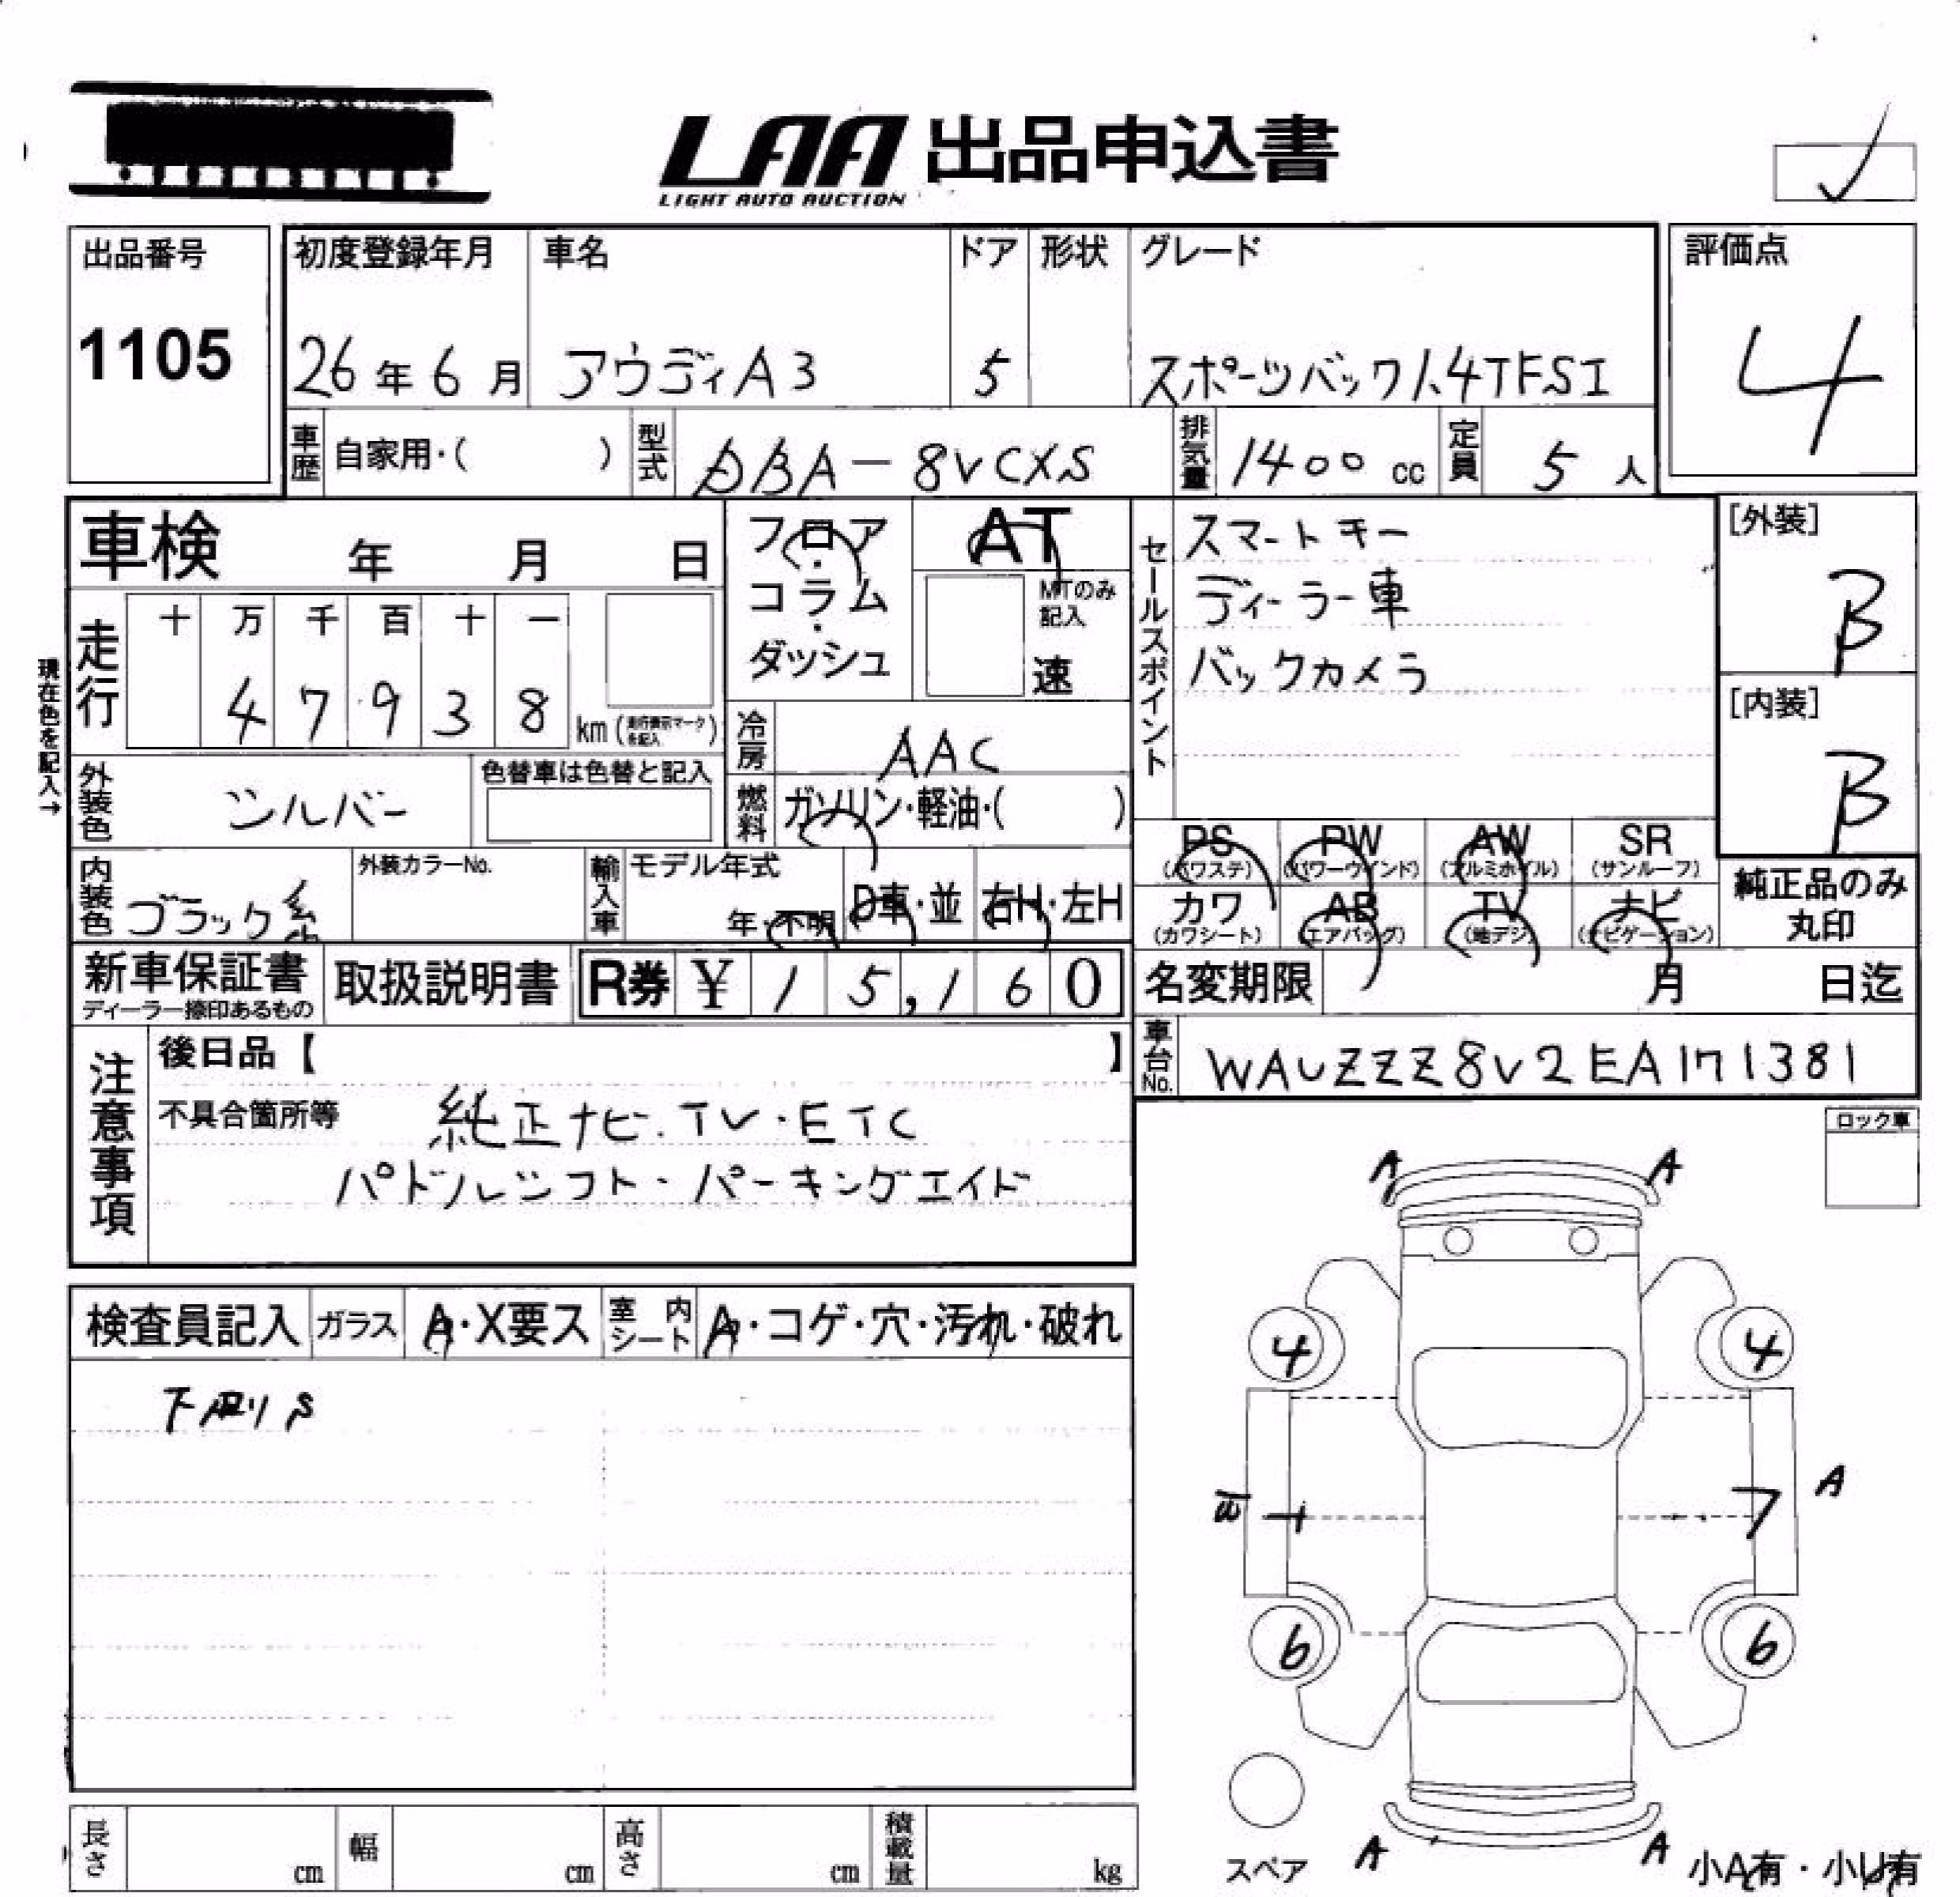 LAA 出品申込書
LIGHT AUTO AUCTION
出品番号
1105
初度登録年月
26年6月
車名
アウディA3
ドア
5
形状
グレード
スポーツバック1.4TFSI
評価点
4
車歴
自家用・( )
型式
DBA-8VCXS
排気量
1400cc
定員
5人
車検 年 月 日
走行
十 万 千 百 十 一
4 7 9 3 8
km(走行表示マークを記入)
現在色を記入→
外装色
シルバー
色替車は色替と記入
内装色
ブラック系
外装カラーNo.
フロア
・
コラム
・
ダッシュ
AT
MTのみ
記入
速
冷房
AAC
燃料
ガソリン・軽油・( )
輸入車
モデル年式
年・不明
D車・並
右H・左H
セールスポイント
スマートキー
ディーラー車
バックカメラ
[外装]
B
[内装]
B
PS
(パワステ)
PW
(パワーウインド)
AW
(アルミホイル)
SR
(サンルーフ)
カワ
(カワシート)
AB
(エアバッグ)
TV
(地デジ)
ナビ
(ナビゲーション)
純正品のみ
丸印
新車保証書
ディーラー捺印あるもの
取扱説明書
R券 ¥ 15,160
名変期限 月 日迄
車台No.
WAUZZZ8V2EA171381
注意事項
後日品【 】
不具合箇所等
純正ナビ.TV・ETC
パドルシフト・パーキングエイド
ロック車
検査員記入
ガラス
A・X要ス
室内シート
A・コゲ・穴・汚れ・破れ
下廻りS
A A
4 4
A
7
6 6
スペア
A A
小A有・小U有
長さ cm
幅 cm
高さ cm
積載量 kg